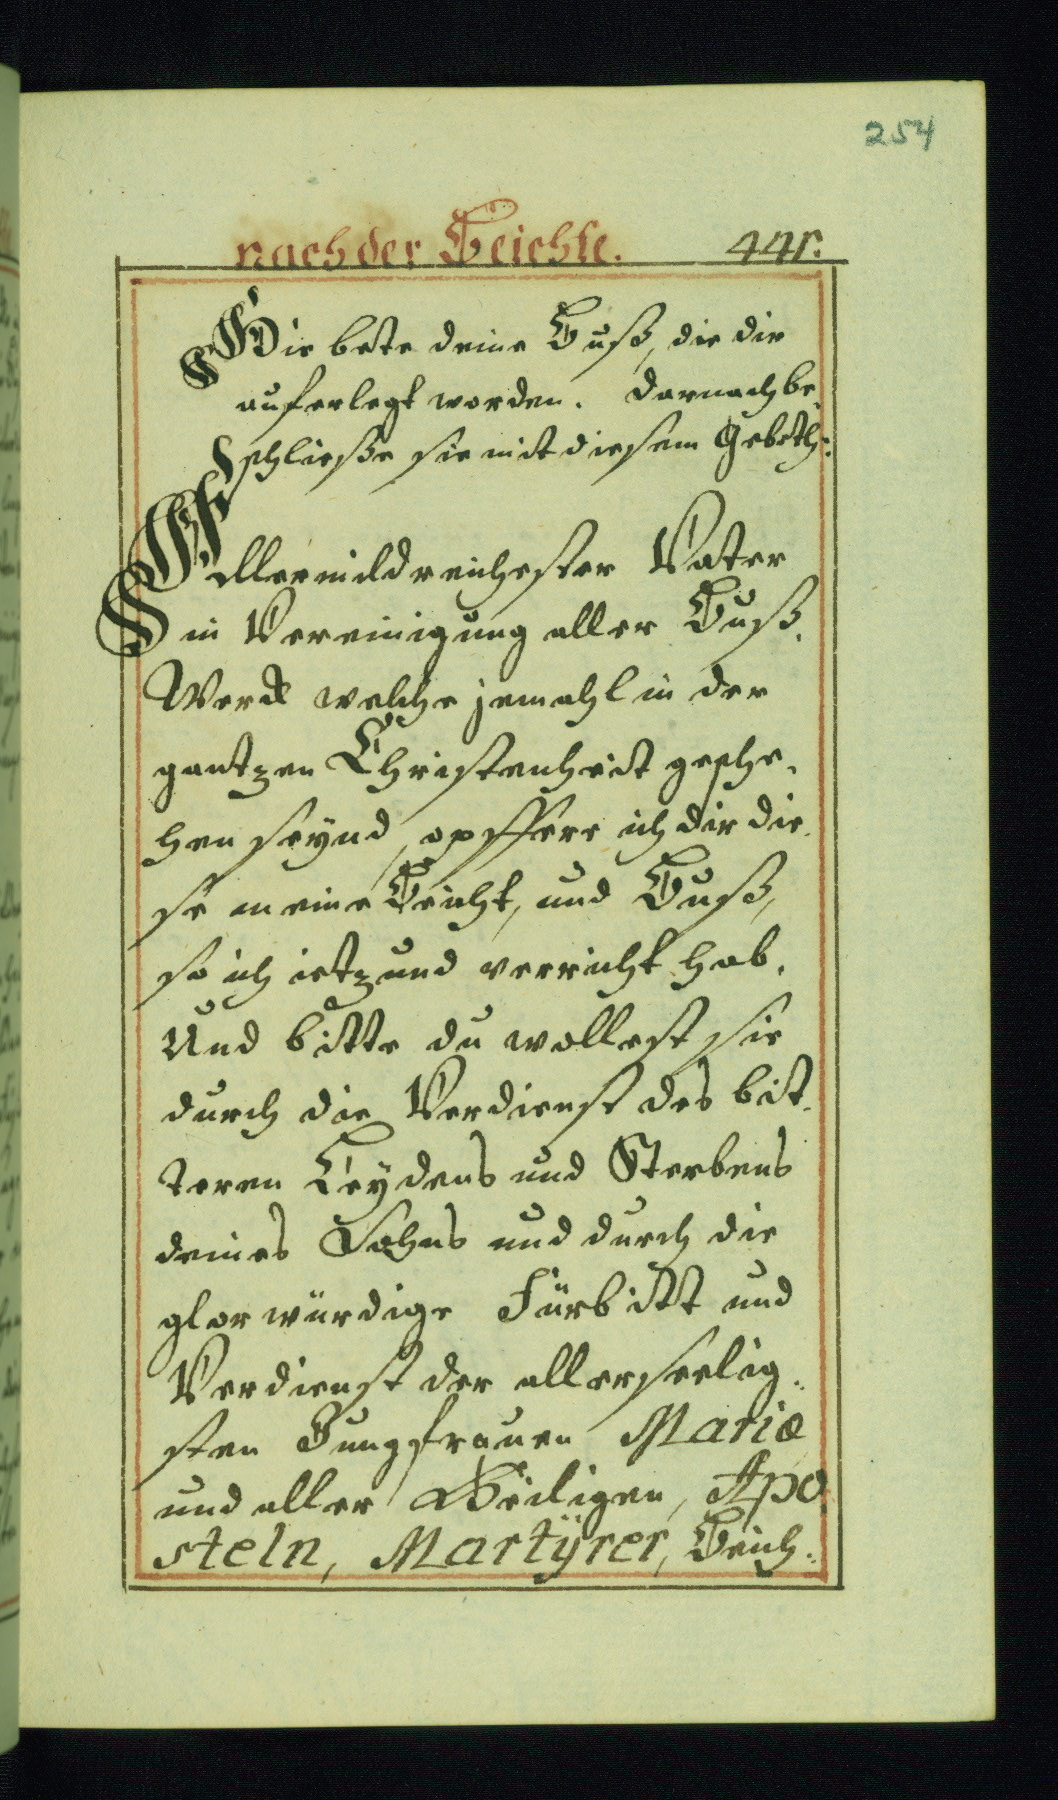 254
nach der Beichte. 441.
Hie bete deine Buß, die dir
auferlegt worden. Darnach be,
schließe sie mit diesem Gebeth:
O Allermildreichester Vater
in Vereinigung aller Buß,
Werck welche jemahl in der
gantzen Christenheit gesche,
hen seynd, opffere ich dir die,
se meine Beicht, und Buß,
so ich ietzund verricht hab,
Und bitte du wollest sie
durch die Verdienst des bit,
teren Leydens und Sterbens
deines Sohns und durch die
glorwürdige Fürbitt und
Verdienst der allerseelig,
sten Jungfrauen Mariæ
und aller Heiligen, Apo,
steln, Martÿrer, Beich,